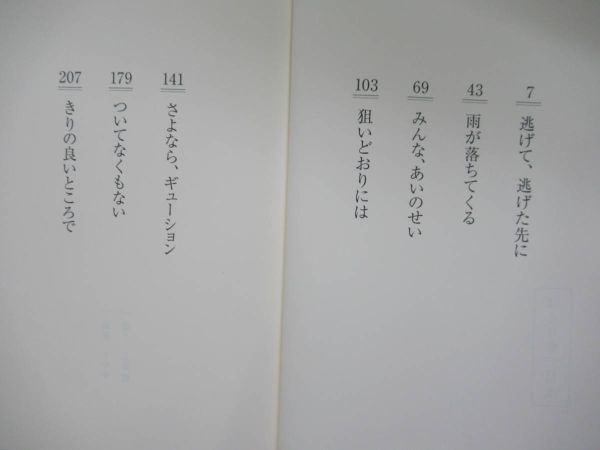 7 逃げて、逃げた先に
43 雨が落ちてくる
69 みんな、あいのせい
103 狙いどおりには
141 さよなら、ギューション
179 ついてなくもない
207 きりの良いところで